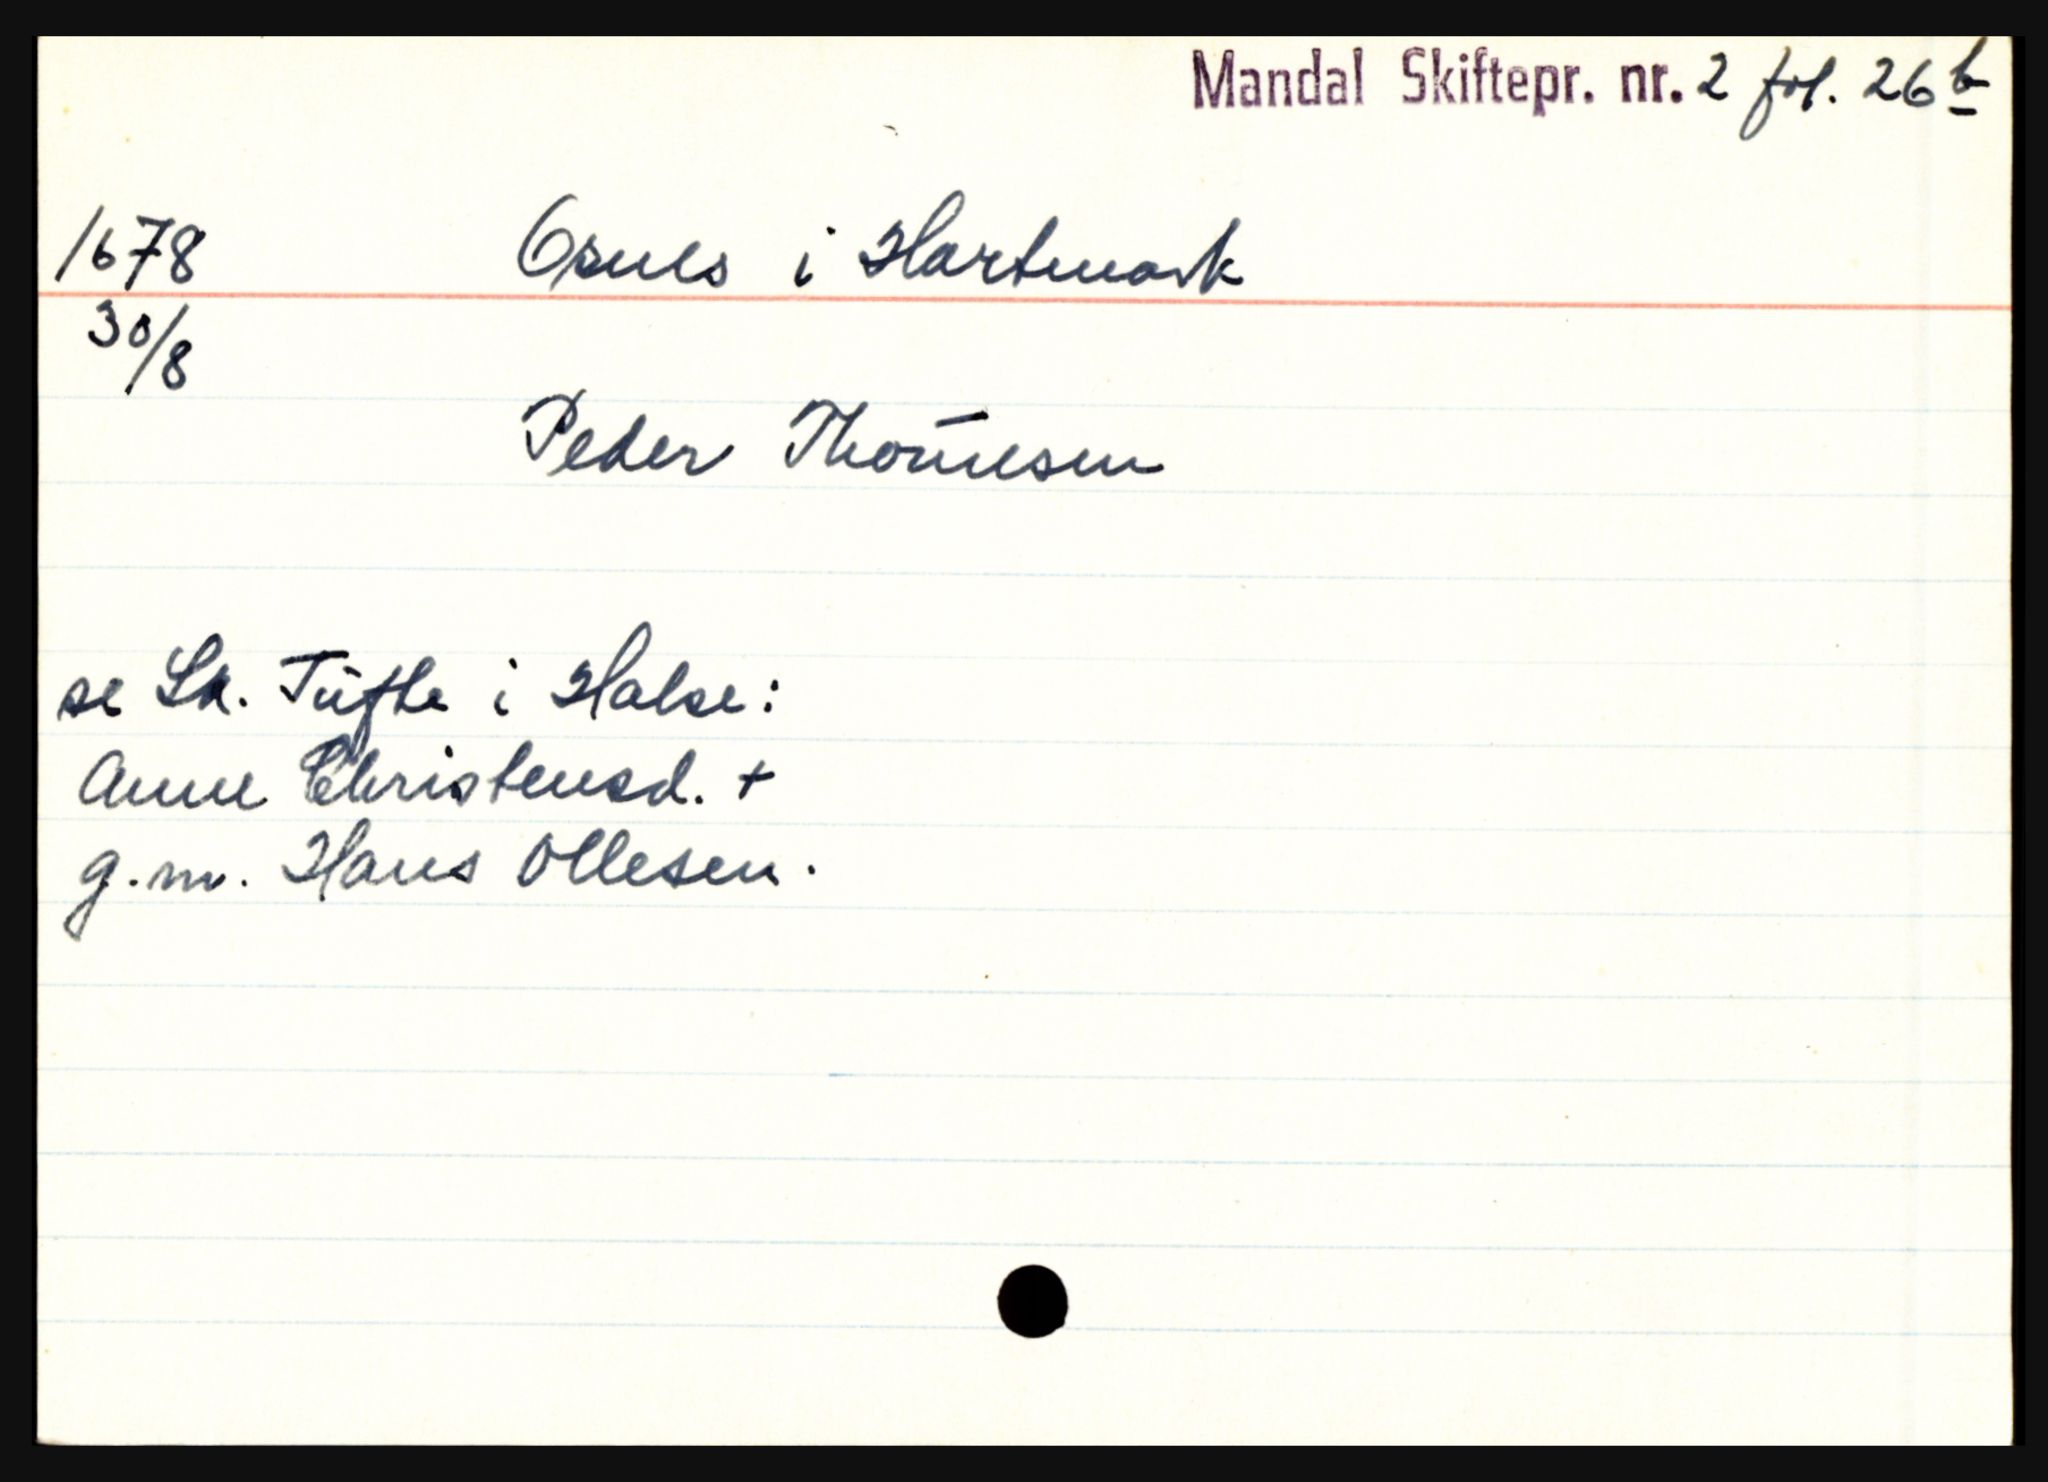 Mandal Skiftepr. nr. 2 fol. 26 b
1678 Osnes i Hartmark
30/8
Peder Thom̄esen
se Lk. Tufte i Halse:
Anne Christensd. +
g.m. Hans Ollesen.